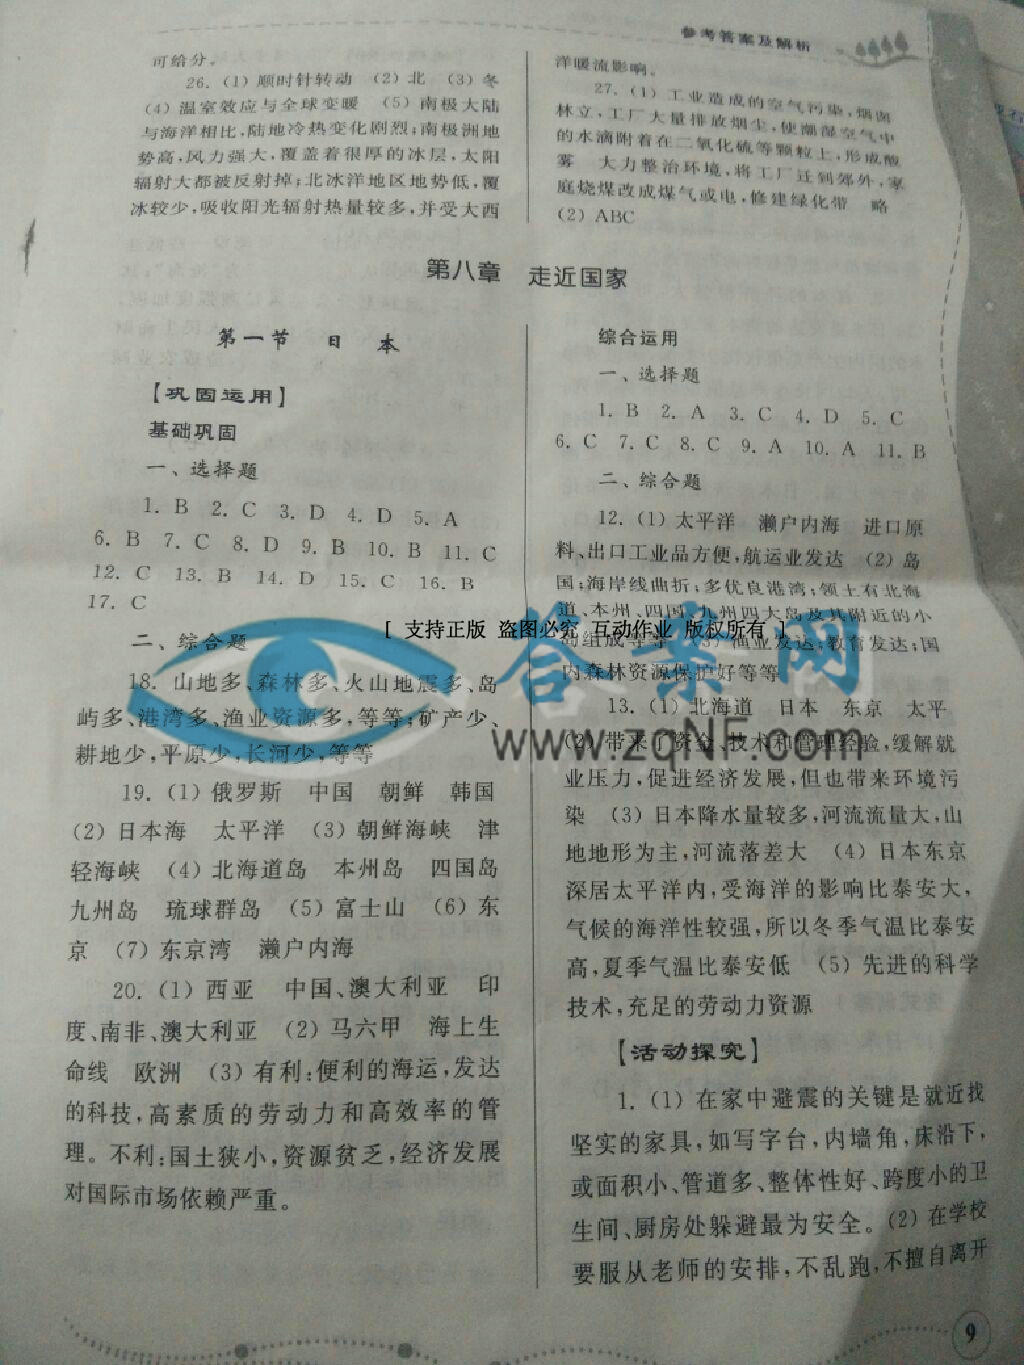 参考答案及解析
可给分。
26. (1) 顺时针转动 (2) 北 (3) 冬
(4) 温室效应与全球变暖 (5) 南极大陆
与海洋相比,陆地冷热变化剧烈;南极洲地
势高,风力强大,覆盖着很厚的冰层,太阳
辐射大都被反射掉;北冰洋地区地势低,覆
冰较少,吸收阳光辐射热量较多,并受大西
洋暖流影响。
27. (1) 工业造成的空气污染,烟囱
林立,工厂大量排放烟尘,使潮湿空气中
的水滴附着在二氧化硫等颗粒上,形成酸
雾 大力整治环境,将工厂迁到郊外,家
庭烧煤改成煤气或电,修建绿化带 略
(2) ABC
第八章 走近国家
第一节 日 本
【巩固运用】
基础巩固
一、选择题
1. B 2. C 3. D 4. D 5. A
6. B 7. C 8. D 9. B 10. B 11. C
12. C 13. B 14. D 15. C 16. B
17. C
二、综合题
18. 山地多、森林多、火山地震多、岛
屿多、港湾多、渔业资源多,等等;矿产少、
耕地少,平原少,长河少,等等
19. (1) 俄罗斯 中国 朝鲜 韩国
(2) 日本海 太平洋 (3) 朝鲜海峡 津
轻海峡 (4) 北海道岛 本州岛 四国岛
九州岛 琉球群岛 (5) 富士山 (6) 东
京 (7) 东京湾 濑户内海
20. (1) 西亚 中国、澳大利亚 印
度、南非、澳大利亚 (2) 马六甲 海上生
命线 欧洲 (3) 有利:便利的海运,发达
的科技,高素质的劳动力和高效率的管
理。不利:国土狭小,资源贫乏,经济发展
对国际市场依赖严重。
综合运用
一、选择题
1. B 2. A 3. C 4. D 5. C
6. C 7. C 8. C 9. A 10. A 11. B
二、综合题
12. (1) 太平洋 濑户内海 进口原
料、出口工业品方便,航运业发达 (2) 岛
国;海岸线曲折;多优良港湾;领土有北海
道、本州、四国、九州四大岛及其附近的小
岛组成等等 (3) 渔业发达;教育发达;国
内森林资源保护好等等
13. (1) 北海道 日本 东京 太平
(2) 带来了资金、技术和管理经验,缓解就
业压力,促进经济发展,但也带来环境污
染 (3) 日本降水量较多,河流流量大,山
地地形为主,河流落差大 (4) 日本东京
深居太平洋内,受海洋的影响比泰安大,
气候的海洋性较强,所以冬季气温比泰安
高,夏季气温比泰安低 (5) 先进的科学
技术,充足的劳动力资源
【活动探究】
1. (1) 在家中避震的关键是就近找
坚实的家具,如写字台,内墙角,床沿下,
或面积小、管道多、整体性好、跨度小的卫
生间、厨房处躲避最为安全。(2) 在学校
要服从老师的安排,不乱跑,不擅自离开
9
[ 支持正版 盗图必究 互动作业 版权所有 ]
答案网
www.zqNF.com